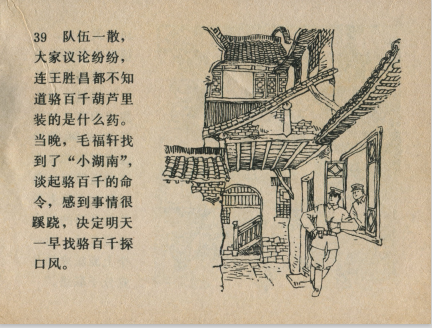 39 队伍一散，
大家议论纷纷，
连王胜昌都不知
道骆百千葫芦里
装的是什么药。
当晚，毛福轩找
到了“小湖南”，
谈起骆百千的命
令，感到事情很
蹊跷，决定明天
一早找骆百千探
口风。